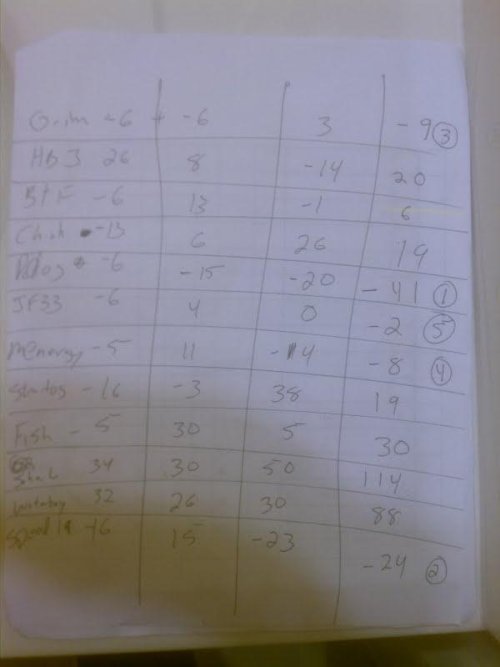 Grim -6 -6 3 -9 ③
HB3 26 8 -14 20
BPF -6 13 -1 6
-13 6 26 19
-6 -15 -20 -41 ①
JF33 -6 4 0 -2 ⑤
-5 11 -14 -8 ④
Stratos -16 -3 38 19
Fish -5 30 5 30
34 30 50 114
32 26 30 88
-16 15 -23 -24 ②